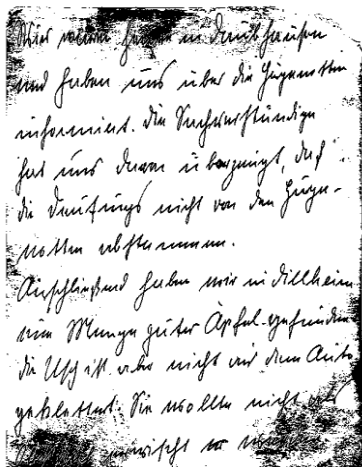 Wir waren heute in Daubhausen
und haben uns über die Hugenotten
informiert. Die Sachverständige
hat uns davon überzeugt, daß
die nicht von den Huge-
notten abstammen.
Anschließend haben wir in Dillheim
eine Menge guter Äpfel gefunden
die ist aber nicht aus dem Auto
geklettert. Sie wollte nicht
erwischt